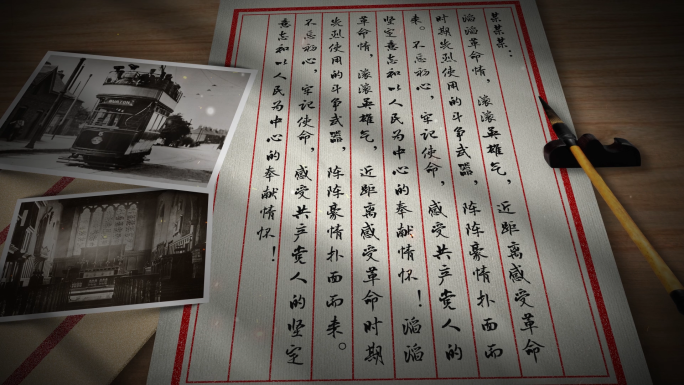 某某某：
滔滔革命情，滚滚英雄气，近距离感受革命
时期先烈使用的斗争武器，阵阵豪情扑面而
来。不忘初心，牢记使命，感受共产党人的
坚定意志和以人民为中心的奉献情怀！滔滔
革命情，滚滚英雄气，近距离感受革命时期
先烈使用的斗争武器，阵阵豪情扑面而来。
不忘初心，牢记使命，感受共产党人的坚定
意志和以人民为中心的奉献情怀！